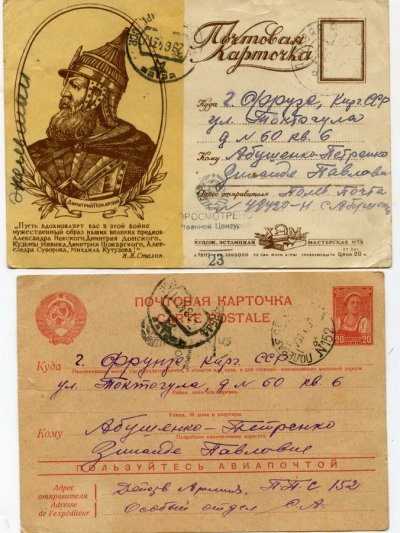 Почтовая
Карточка
Куда г. Фрунзе, Кирг. ССР
ул. Токтогула
д № 60 кв. 6
Кому Абушенко-Петренко
Зинаиде Павловне
Адрес отправителя Полев. почта
Дмитрий Пожарский
„Пусть вдохновляет вас в этой войне
мужественный образ наших великих предков—
Александра Невского, Димитрия Донского,
Кузьмы Минина, Димитрия Пожарского, Алек-
сандра Суворова, Михаила Кутузова!"
И. В. Сталин.
ПРОСМОТРЕНО
Военной Цензурой
23
ХУДОЖ. ЭСТАМПНАЯ МАСТЕРСКАЯ
Цена 20 к.
ПОЧТОВАЯ КАРТОЧКА
CARTE POSTALE
20 20
Куда г. Фрунзе Кирг. ССР
ул. Токтогула д № 60 кв. 6
Улица, № дома и квартиры.
Кому Абушенко-Петренко
Подробное наименование адресата
Зинаиде Павловне
ПОЛЬЗУЙТЕСЬ АВИАПОЧТОЙ
Адрес
отправителя
Adresse
de l'expéditeur
Действ Армия, ППС 152
Особый отдел